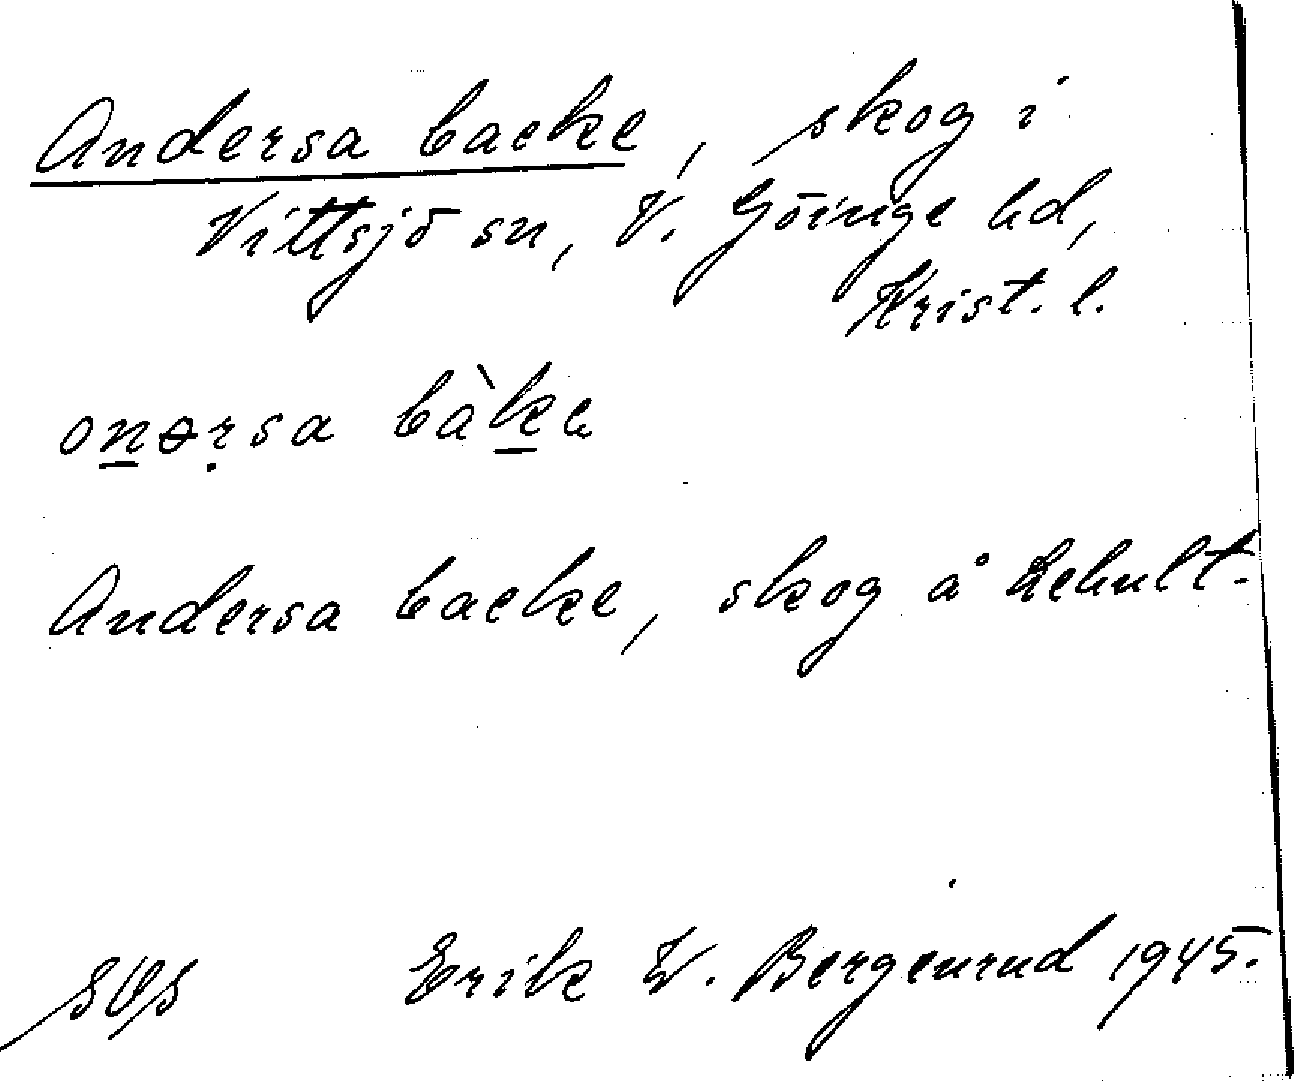 Andersa backe, skog i
Vittsjö sn, V. Göinge hd,
Krist. l.
onərsa bàkə
Andersa backe, skog å Lehult.
Erik W. Bergenrud 1945.